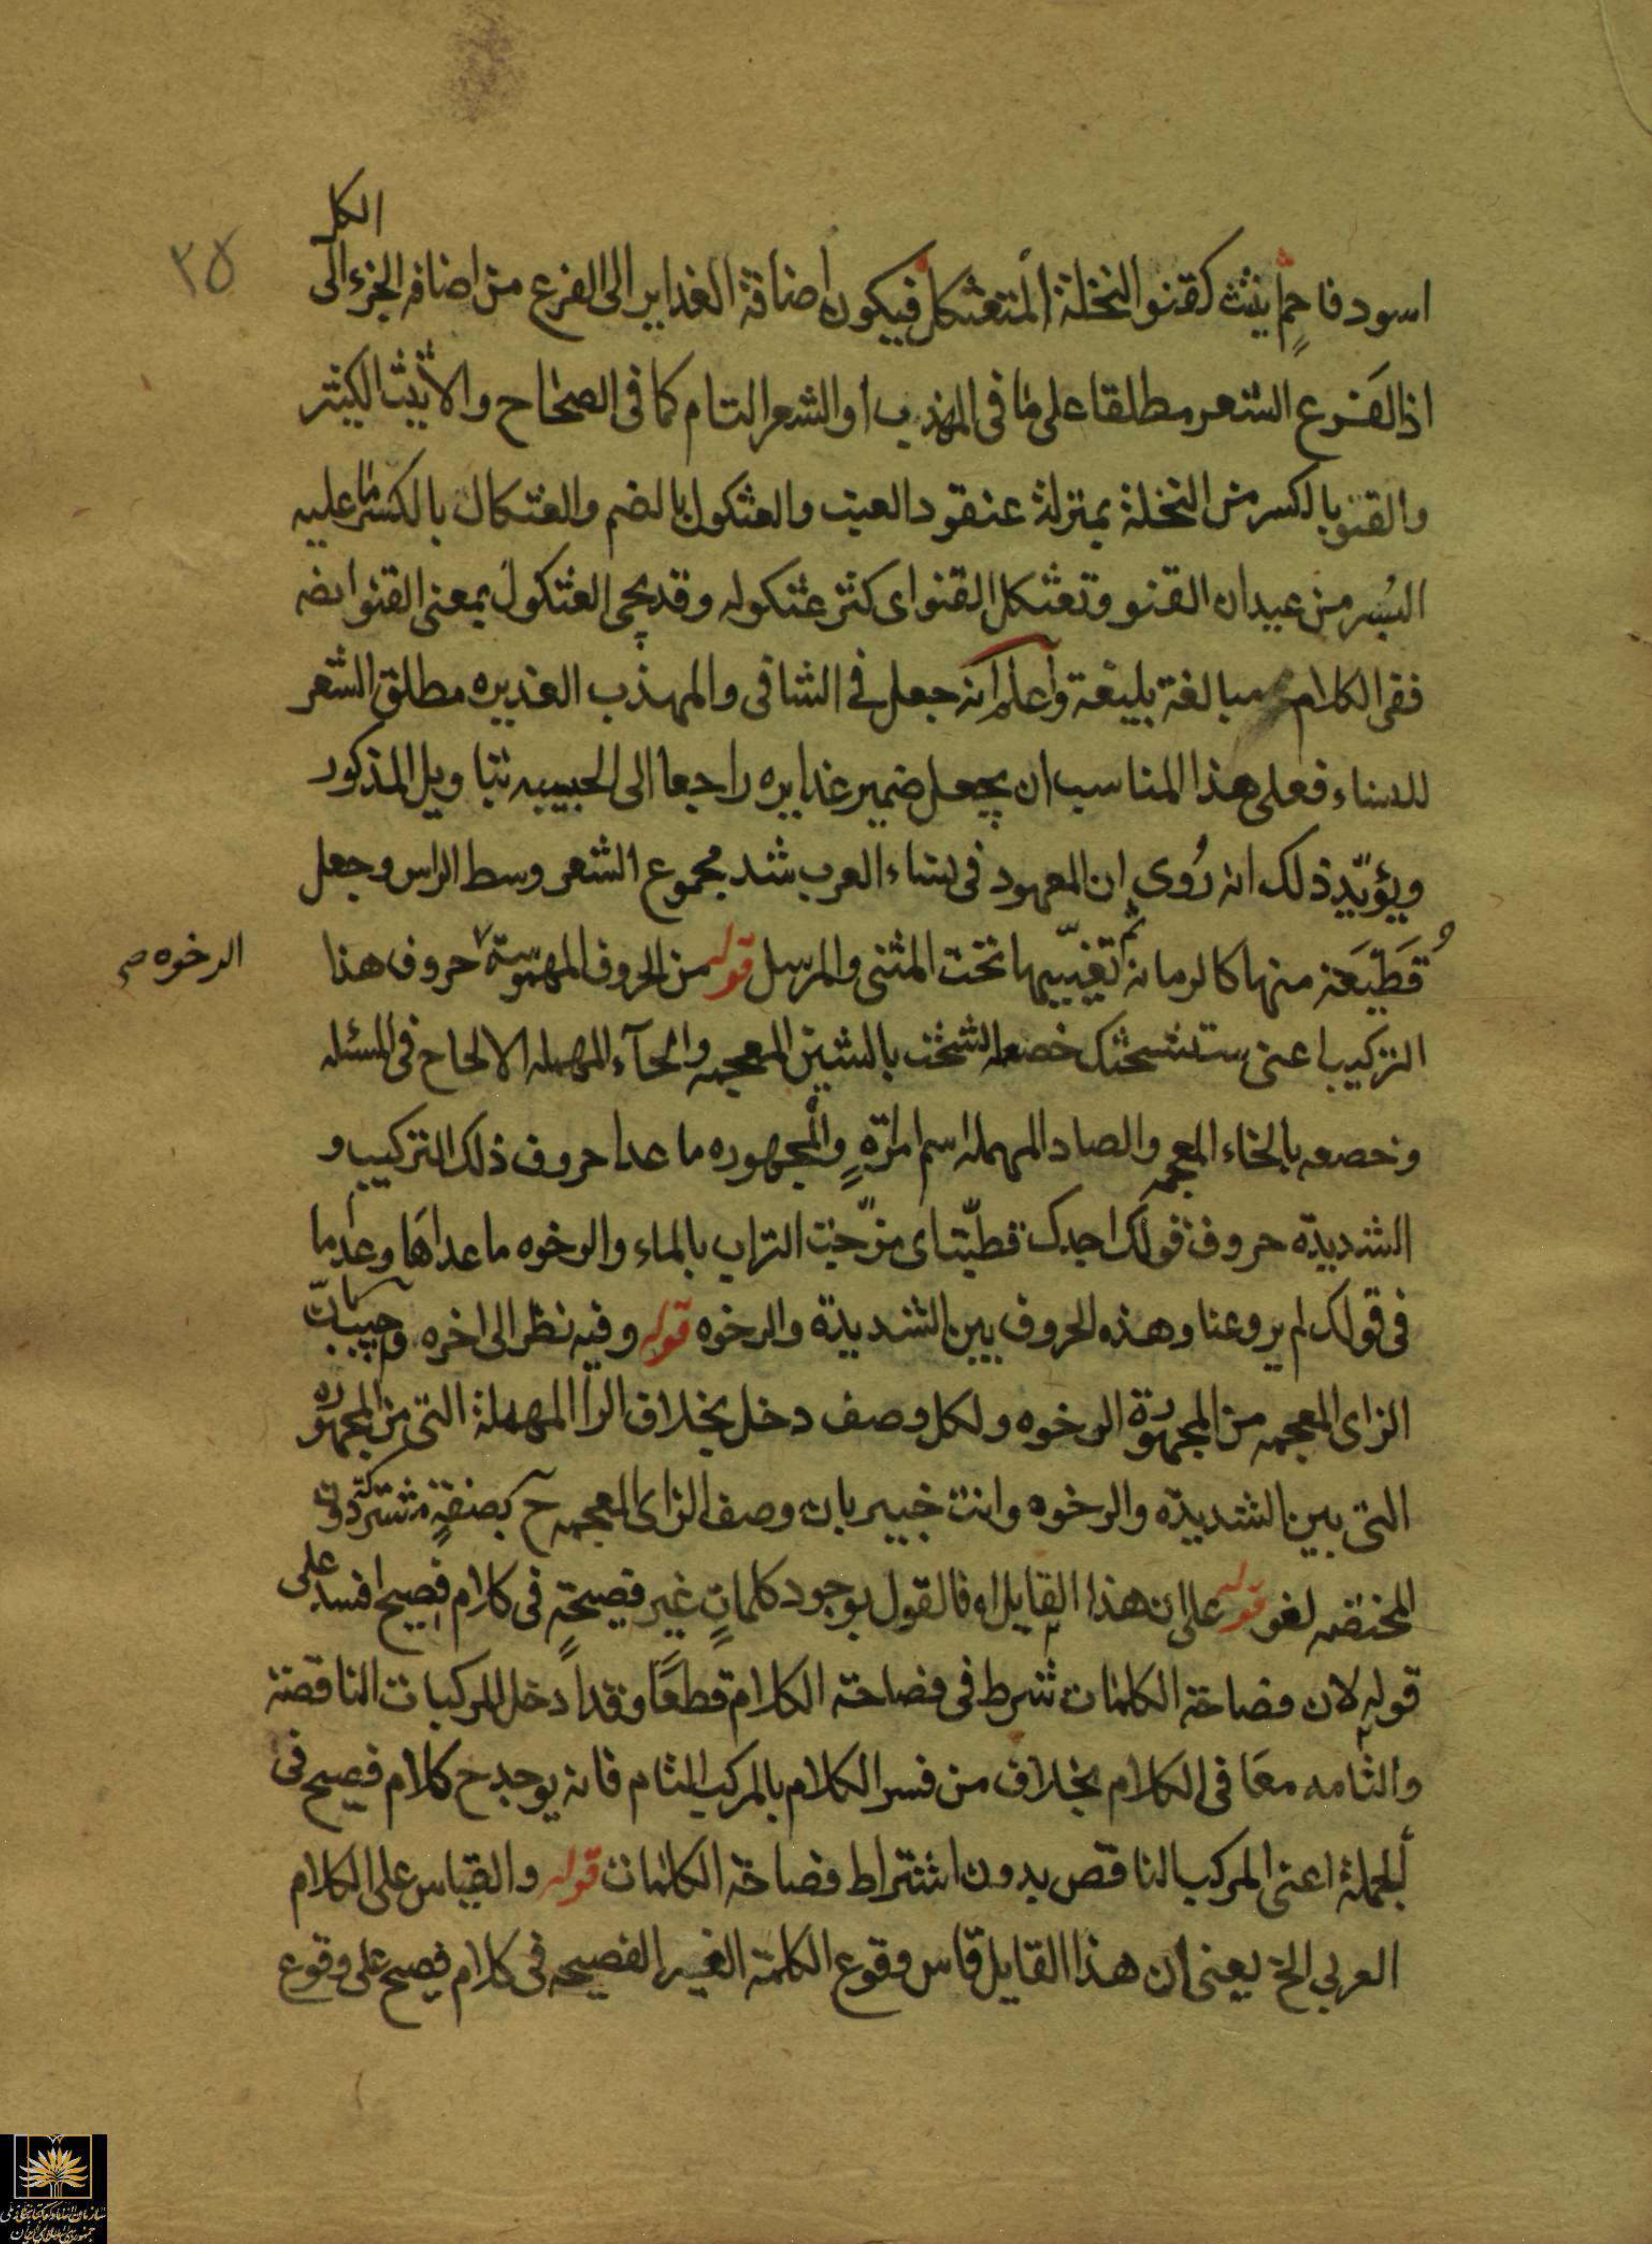 ٣٥
اسود فاحم اثيث كقنو النخلة المتعثكل فيكون اضافة الغداير الى الفرع من اضافه الجزء الى الكل
اذ الفرع الشعر مطلقا على ما فى المهذب او الشعر التام كما فى الصحاح والاثيث الكثير
والقنو بالكسر من النخلة بمنزلة عنقود العنب والعثكول بالضم والعثكال بالكسر ما عليه
البسر من عيدان القنو وتعثكل القنو اى كثر عثكوله وقد يجى العثكول بمعنى القنو ايضه
ففى الكلام مبالغة بليغة واعلم انه جعل فى الشافى والمهذب الغديره مطلق الشعر
للنساء فعلى هذا المناسب ان يجعل ضمير غدايره راجعا الى الحبيبه بتاويل المذكور
ويؤيد ذلك انه روى ان المعهود فى نساء العرب شد مجموع الشعر وسط الراس وجعل
قطيعة منها كالرمانه ثم تغييبها تحت المثنى والمرسل قوله من الحروف المهموسة حروف هذا
الرخوه صح
التركيب اعنى ستشحثك خصعه الشحث بالشين المعجمه والحآء المهمله الالحاح فى المسئله
وخصعه بالخاء المعجمه والصاد المهمله اسم امراة والمجهوره ما عدا حروف ذلك التركيب و
الشديدة حروف قولك اجدك قطبت اى مزجت التراب بالماء والرخوه ما عداها وعدا ما
فى قولك لم يروعنا وهذه الحروف بين الشديدة والرخوه قوله وفيه نظر الى اخره وجيب بان
الزاى المعجمه من المجهورة الرخوه ولكل وصف دخل بخلاف الرا المهملة التى من المجهوره
التى بين الشديدة والرخوه وانت خبير بان وصف الزاى المعجمه ح بصفة مشتركة دون
المختصه لغو قوله على ان هذا القايل اه فالقول بوجود كلمات غير فصيحة فى كلام فصيح افسد على
قوله لان فصاحة الكلمات شرط فى فصاحة الكلام قطعا وقد ادخل المركبات الناقصة
والتامه معا فى الكلام بخلاف من فسر الكلام بالمركب التام فانه يوجد ح كلام فصيح فى
الجملة اعنى المركب الناقص بدون اشتراط فصاحة الكلمات قوله والقياس على الكلام
العربى الخ يعنى ان هذا القايل قاس وقوع الكلمة الغير الفصيحه فى كلام فصيح على وقوع